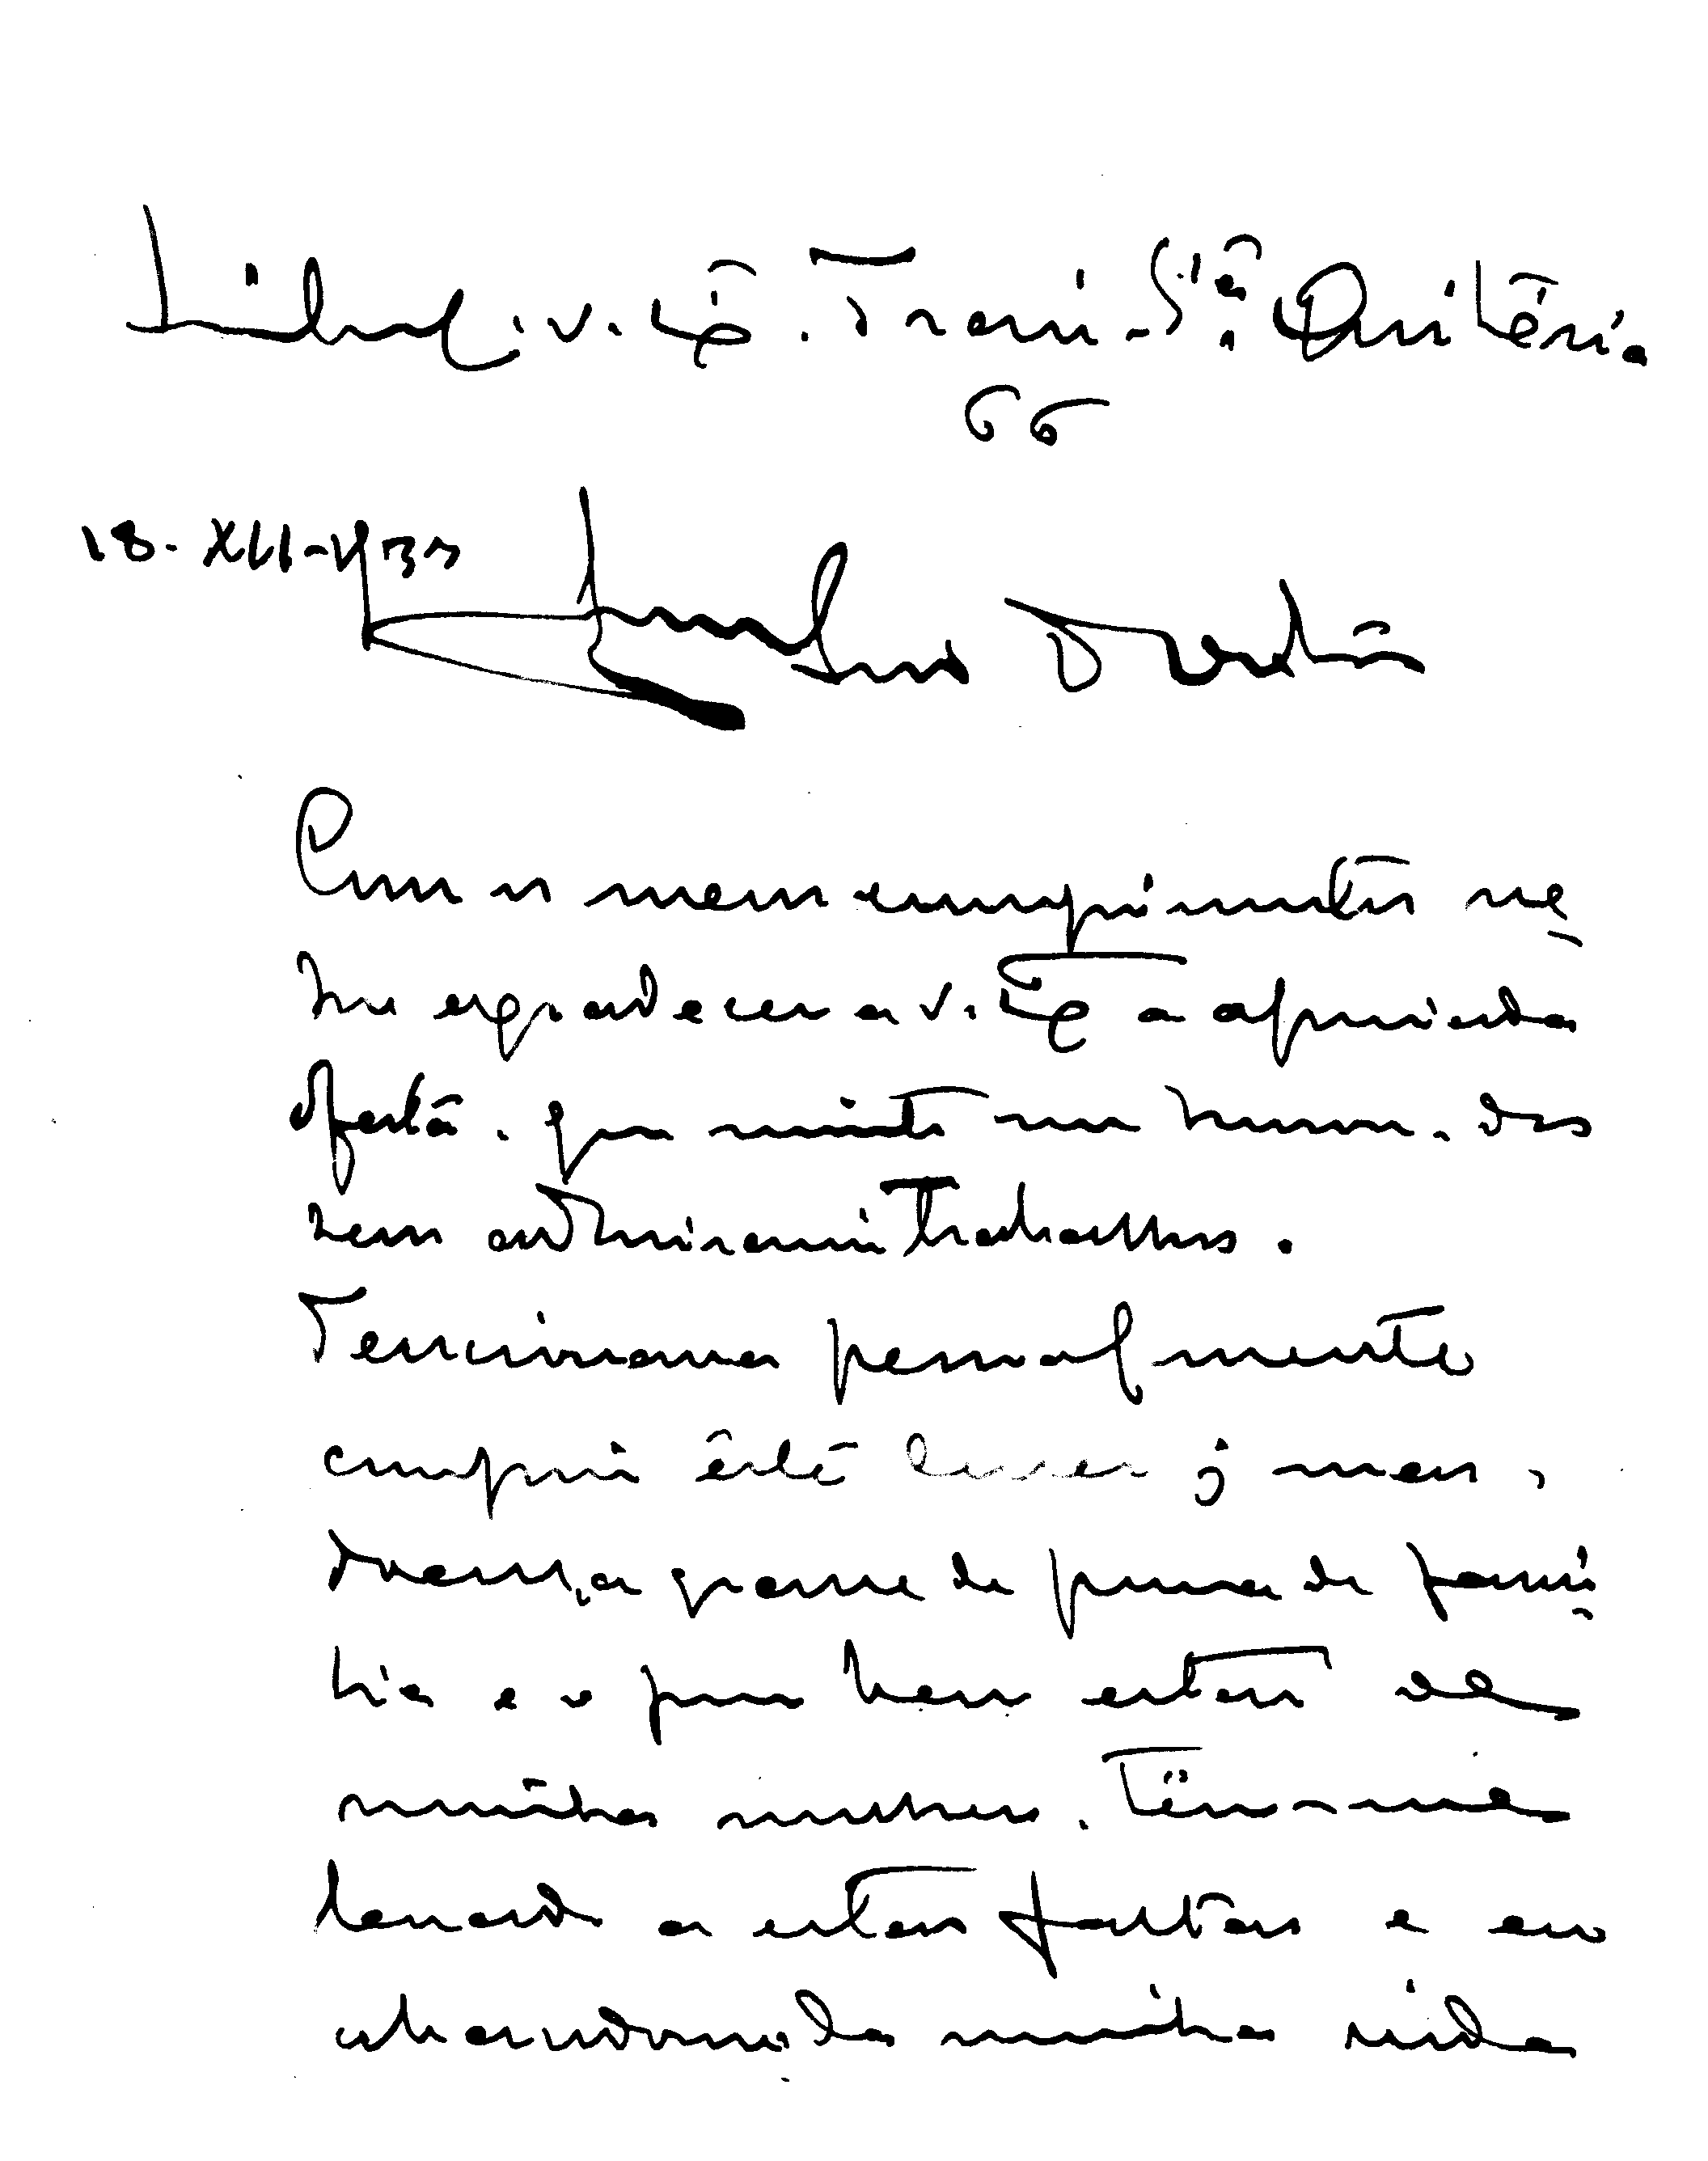 Lisboa. v. Ex. Trav. Sta. Quitéria
66
18-XII-933
Com os meus cumprimentos ve
nho agradecer a v. Ex a apreciada
oferta. que muito me honra. dos
seus admiraveis trabalhos.
Tencionava pessoalmente
cumprir êste dever; mas,
doença grave de pessoa de fami
lia e o pouco bem estar de
minha mulher. Têm-me
levado a estas faltas e eu
abandonada minha vida